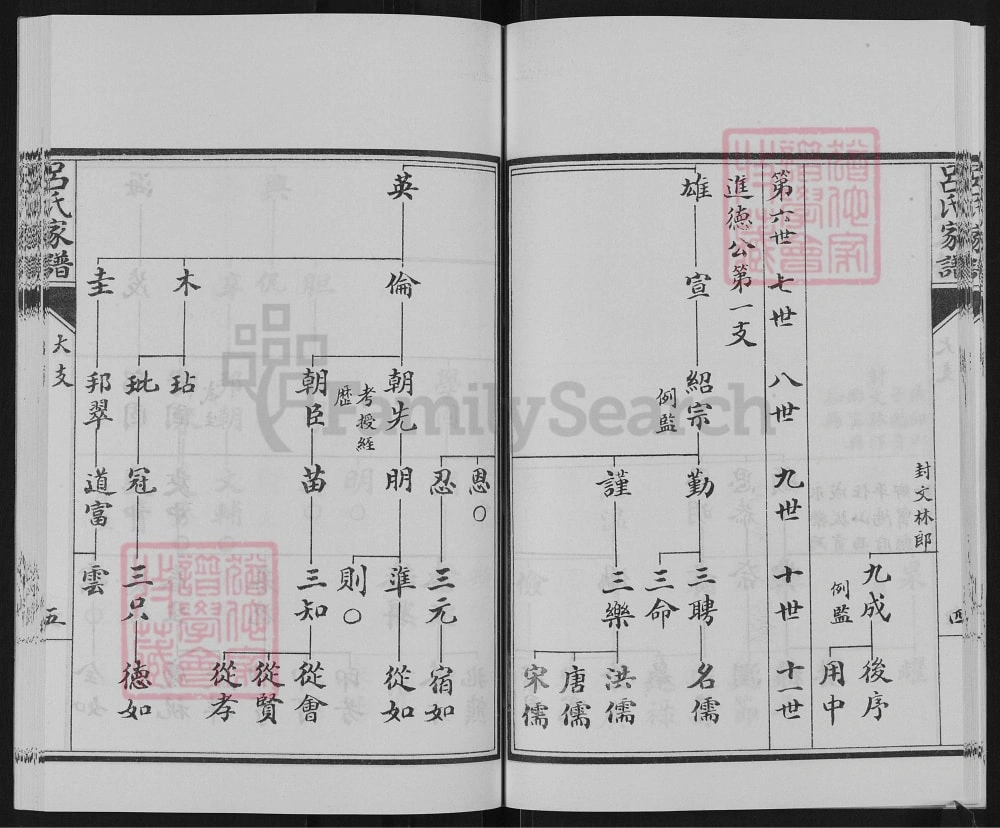 呂氏家譜
四
封文林郎
九成
例監
後序
用中
第六世 七世 八世 九世 十世 十一世
進德公第一支
雄
宣
紹宗
例監
勤
謹
三聘
三命
三樂
名儒
洪儒
唐儒
宋儒
恩○
忍
三元
宿如
英
倫
朝先
考授經歷
明
準
則○
從如
朝臣
苗
三知
從會
從賢
從孝
木
玷
玭
冠
三只
德如
圭
邦翠
道富
雲
呂氏家譜
大支
五
FamilySearch